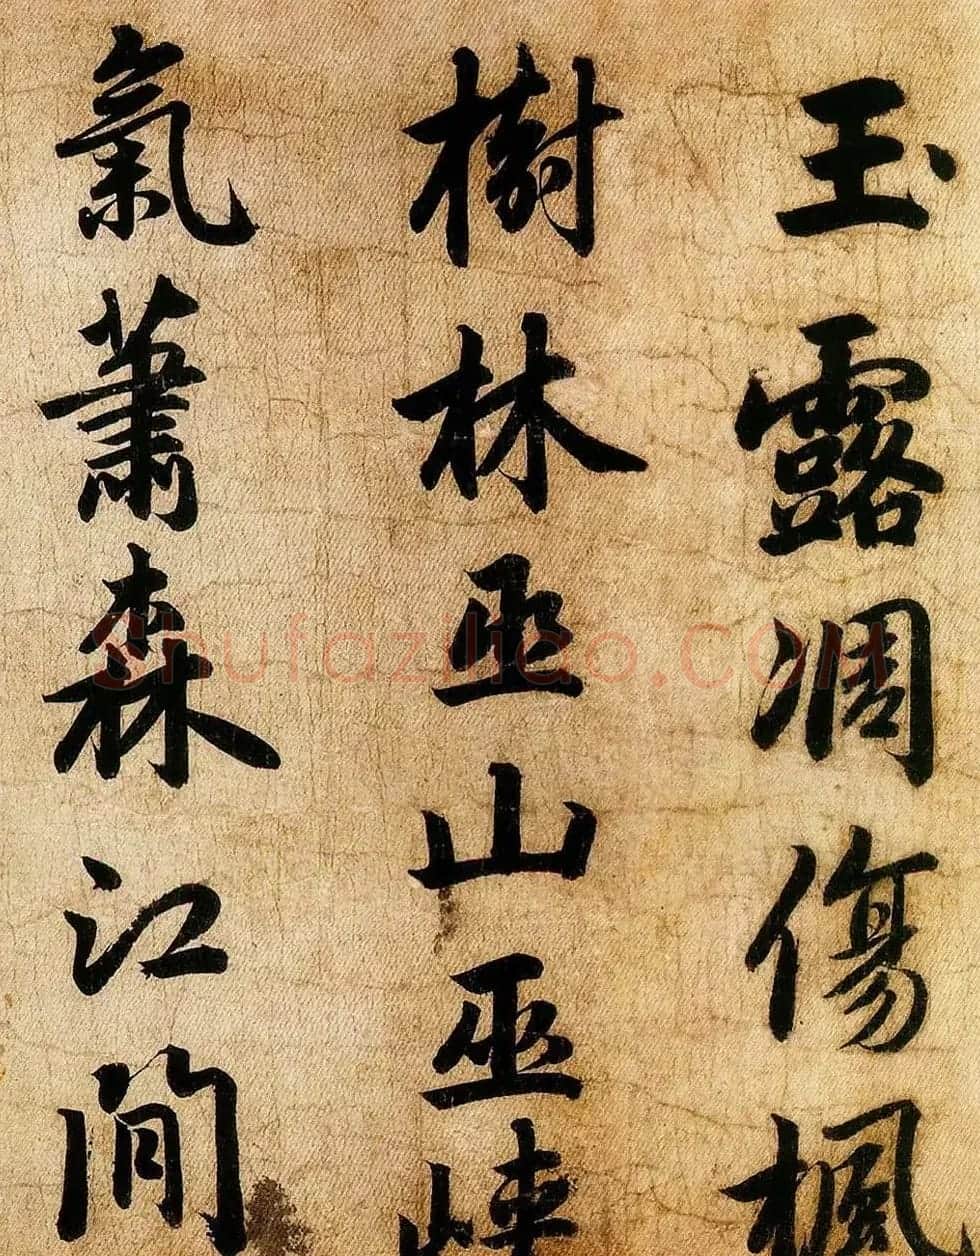 玉露凋傷楓
樹林巫山巫峽
氣蕭森江間
Shufaziliao.COM